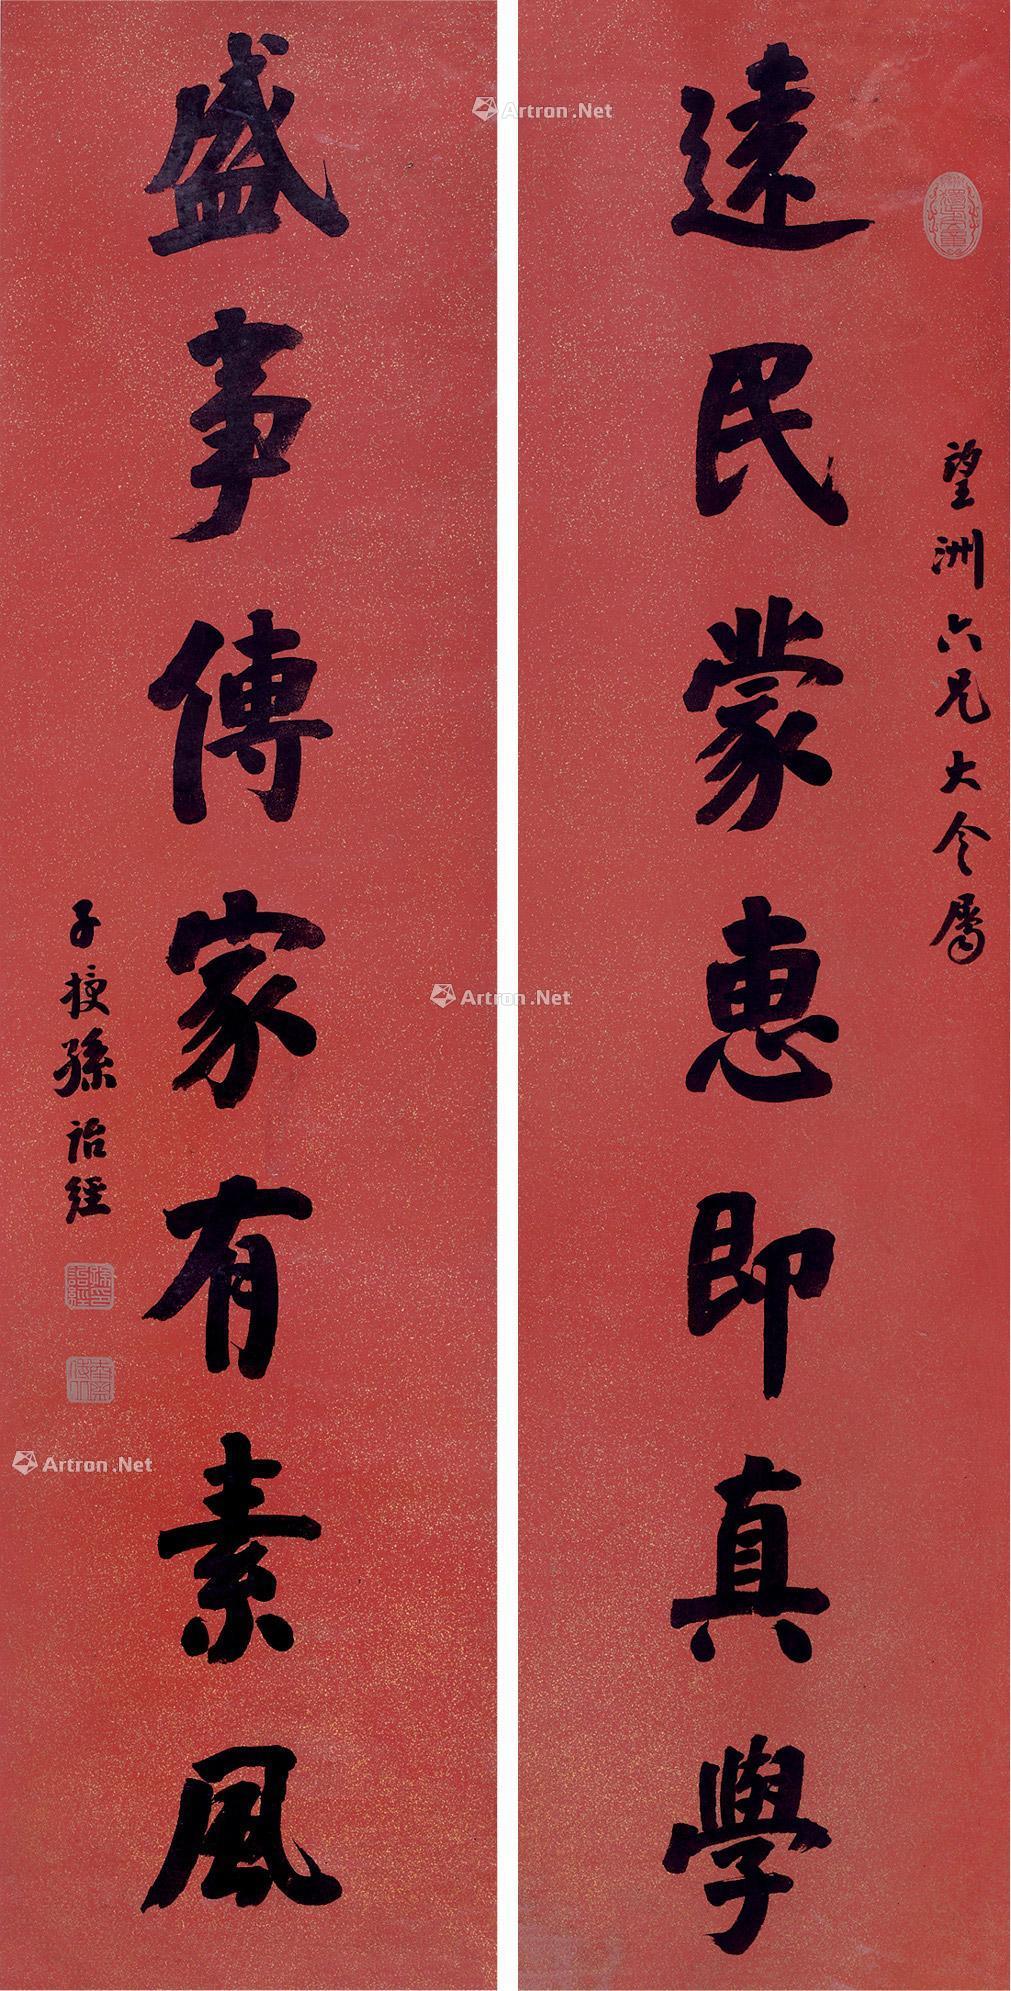 望洲六兄大令屬
遠民蒙惠即真學
盛事傳家有素風
子授孫詒經
Artron.Net
Artron.Net
Artron.Net